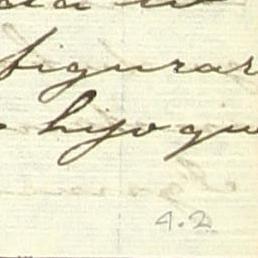 figurar
hijo que
4.2